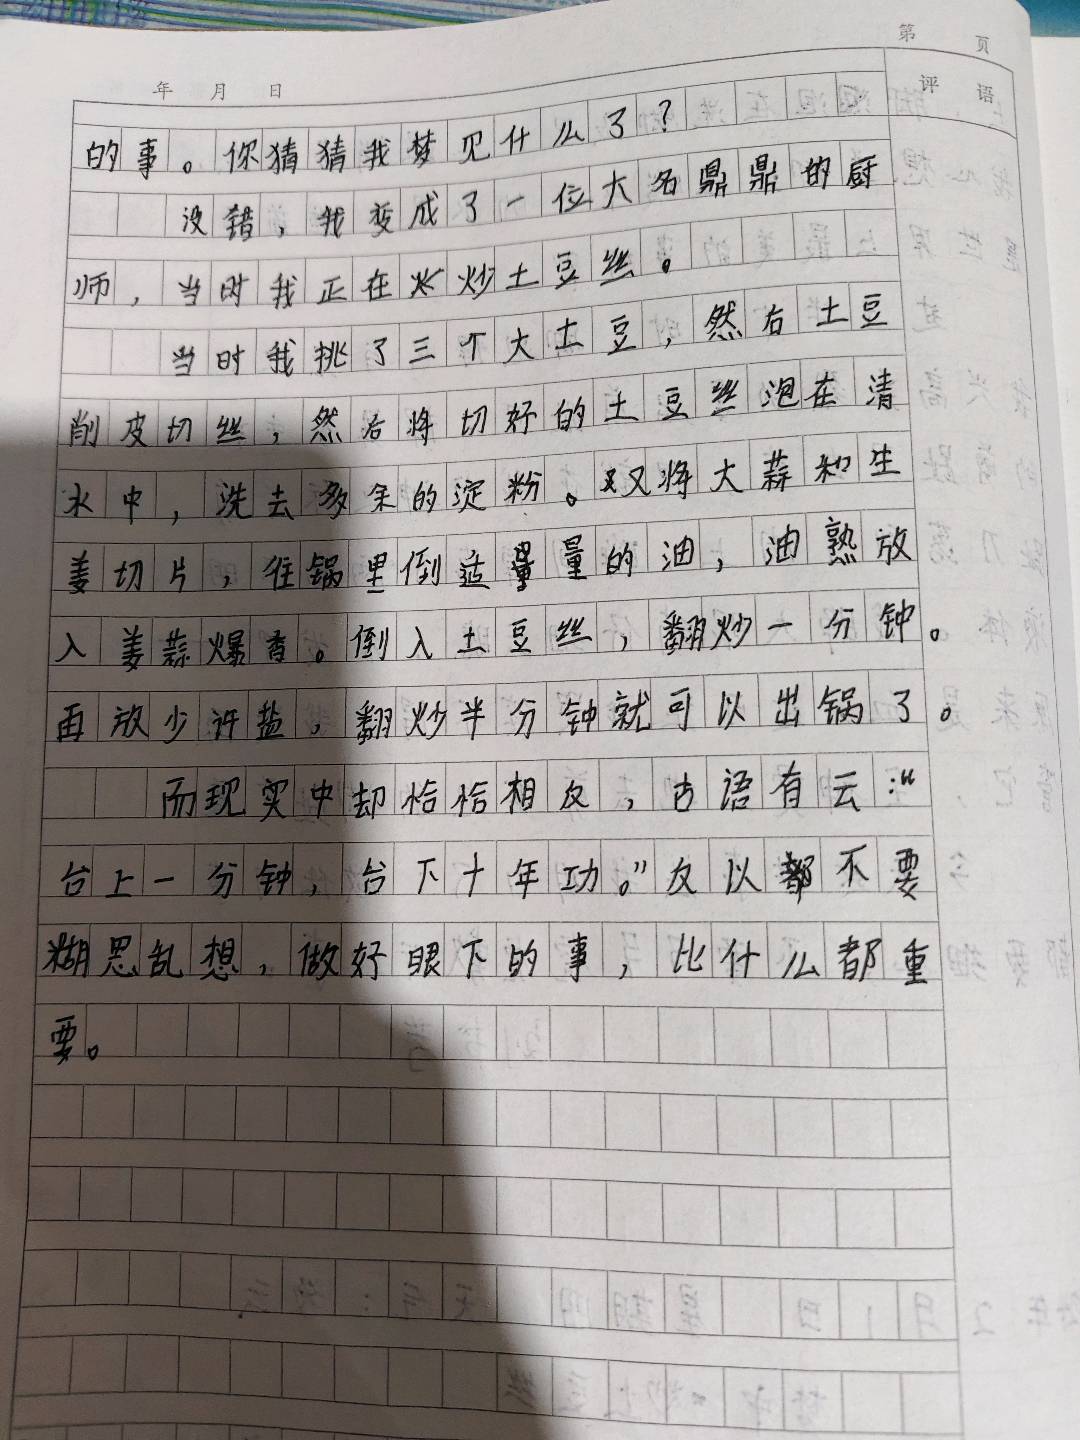 第 页
年 月 日
评 语
的事。你猜猜我梦见什么了？
没错，我变成了一位大名鼎鼎的厨
师，当时我正在炒土豆丝。
当时我挑了三个大土豆，然右土豆
削皮切丝，然后将切好的土豆丝泡在清
水中，洗去多余的淀粉。又将大蒜和生
姜切片，往锅里倒适量的油，油熟放
入姜蒜爆香。倒入土豆丝，翻炒一分钟。
再放少许盐，翻炒半分钟就可以出锅了。
而现实中却恰恰相反，古语有云：“
台上一分钟，台下十年功。”友以都不要
糊思乱想，做好眼下的事，比什么都重
要。